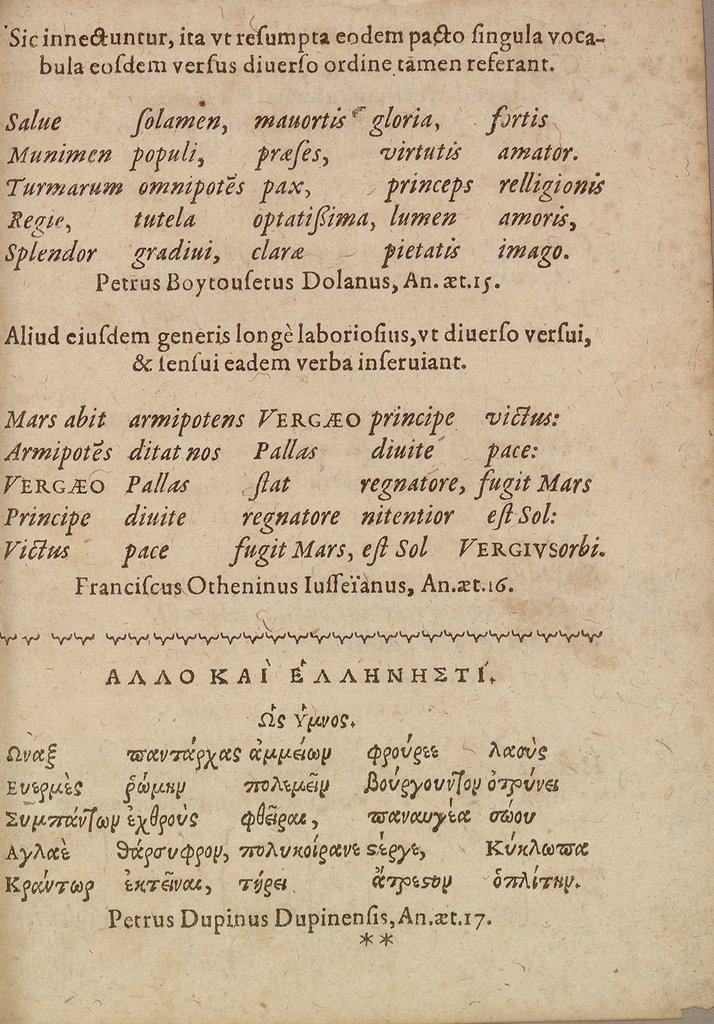 Sic innectuntur, ita vt resumpta eodem pacto singula voca-
bula eosdem versus diuerso ordine tamen referant.
Salue solamen, mauortis gloria, fortis
Munimen populi, præses, virtutis amator.
Turmarum omnipotẽs pax, princeps relligionis
Regie, tutela optatißima, lumen amoris,
Splendor gradiui, claræ pietatis imago.
Petrus Boytousetus Dolanus, An. æt. 15.
Aliud eiusdem generis longè laboriosius, vt diuerso versui,
& sensui eadem verba inseruiant.
Mars abit armipotens VERGÆO principe victus:
Armipotẽs ditat nos Pallas diuite pace:
VERGÆO Pallas stat regnatore, fugit Mars
Principe diuite regnatore nitentior est Sol:
Victus pace fugit Mars, est Sol VERGIVS orbi.
Franciscus Otheninus Iusseïanus, An. æt. 16.
ΑΛΛΟ ΚΑῚ ἙΛΛΗΝΗΣΤΊ.
Ὡς Ὕμνος.
Ὦναξ παντάρχας ἀμμείων φρούρεε λαοὺς
Ευερμὲς ῥώμην πολεμεῖν Βούργουντον ὀτρύνει
Συμπάντων ἐχθροὺς φθεῖραι, παναυγέα σώου
Αγλαὲ θάρσυφρον, πολυκοίρανε στέργε, Κύκλωπα
Κράντωρ ἐκτεῖναι, τήρει ἄτρεστον ὁπλίτην.
Petrus Dupinus Dupinensis, An. æt. 17.
**